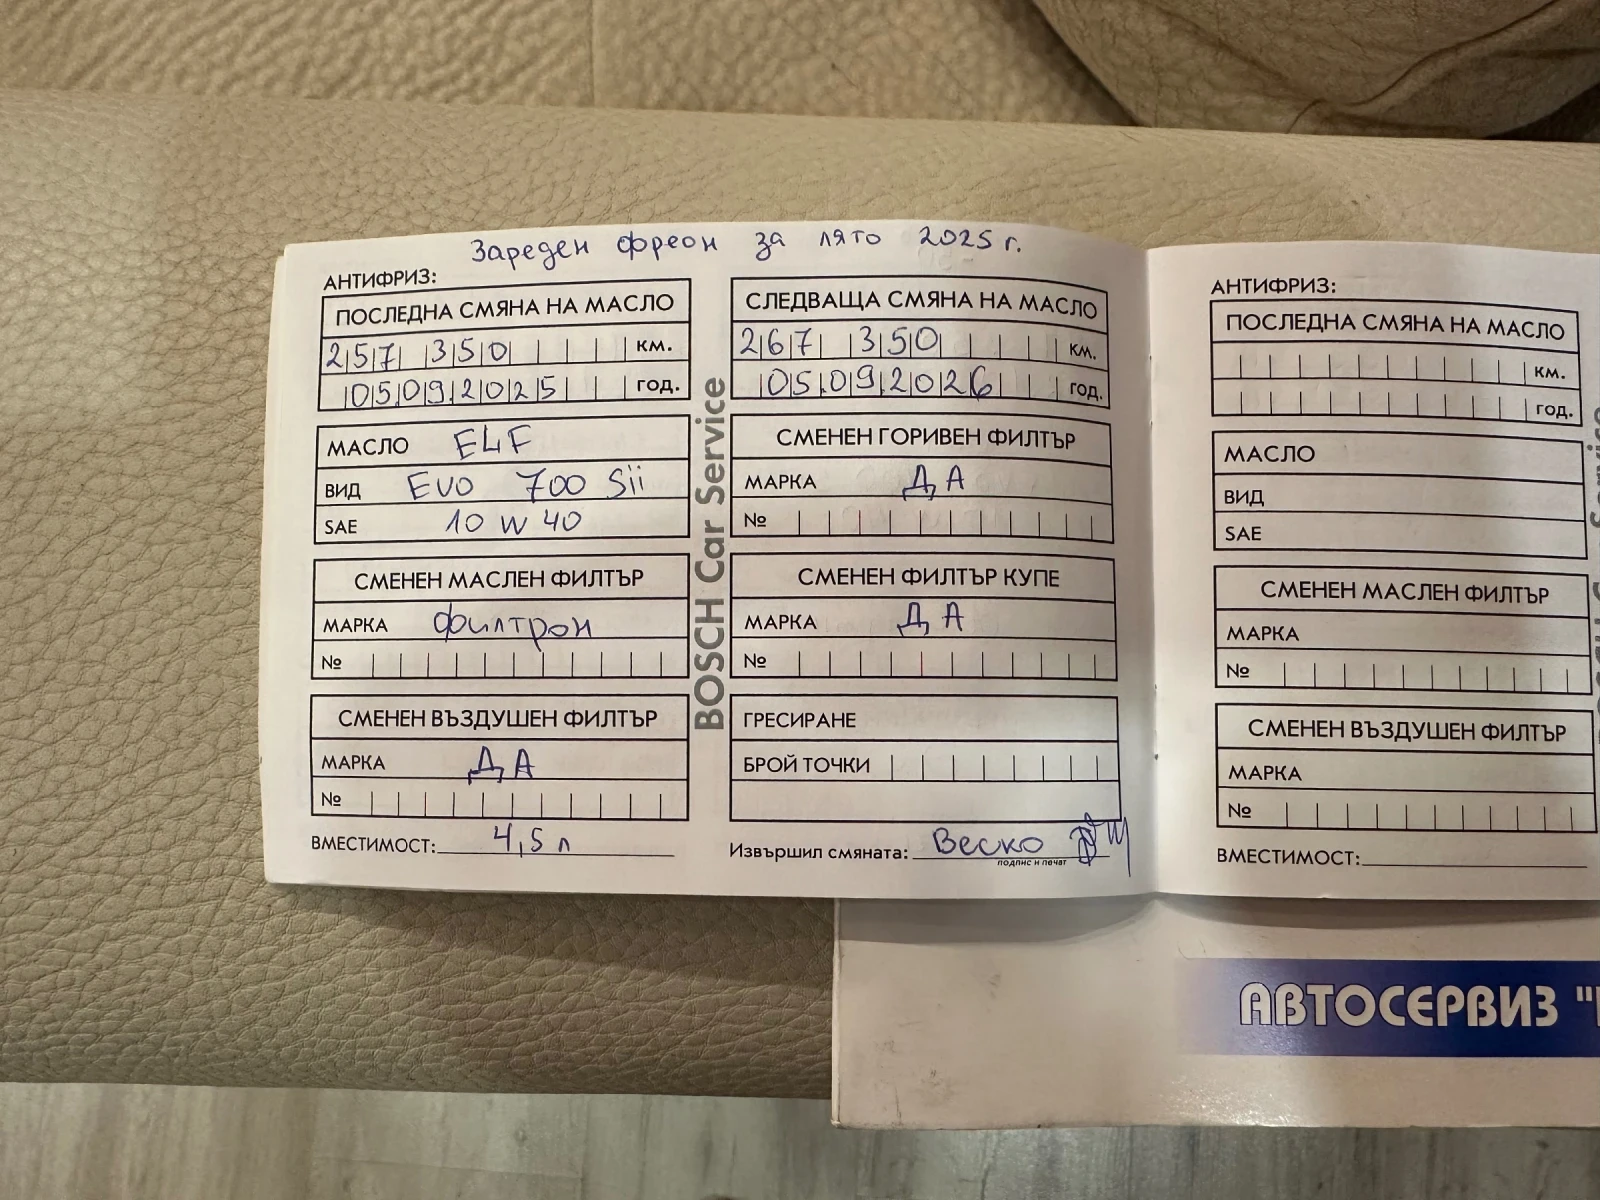 Зареден фреон за лято 2025 г.
АНТИФРИЗ:
ПОСЛЕДНА СМЯНА НА МАСЛО
257 350 км.
05.09.2025 год.
МАСЛО ELF
ВИД EVO 700 Sii
SAE 10 W 40
СМЕНЕН МАСЛЕН ФИЛТЪР
МАРКА филтрон
№
СМЕНЕН ВЪЗДУШЕН ФИЛТЪР
МАРКА ДА
№
ВМЕСТИМОСТ: 4,5 л
BOSCH Car Service
СЛЕДВАЩА СМЯНА НА МАСЛО
267 350 км.
05.09.2026 год.
СМЕНЕН ГОРИВЕН ФИЛТЪР
МАРКА ДА
№
СМЕНЕН ФИЛТЪР КУПЕ
МАРКА ДА
№
ГРЕСИРАНЕ
БРОЙ ТОЧКИ
Извършил смяната: Веско
подпис и печат
АНТИФРИЗ:
ПОСЛЕДНА СМЯНА НА МАСЛО
км.
год.
МАСЛО
ВИД
SAE
СМЕНЕН МАСЛЕН ФИЛТЪР
МАРКА
№
СМЕНЕН ВЪЗДУШЕН ФИЛТЪР
МАРКА
№
ВМЕСТИМОСТ:
АВТОСЕРВИЗ "